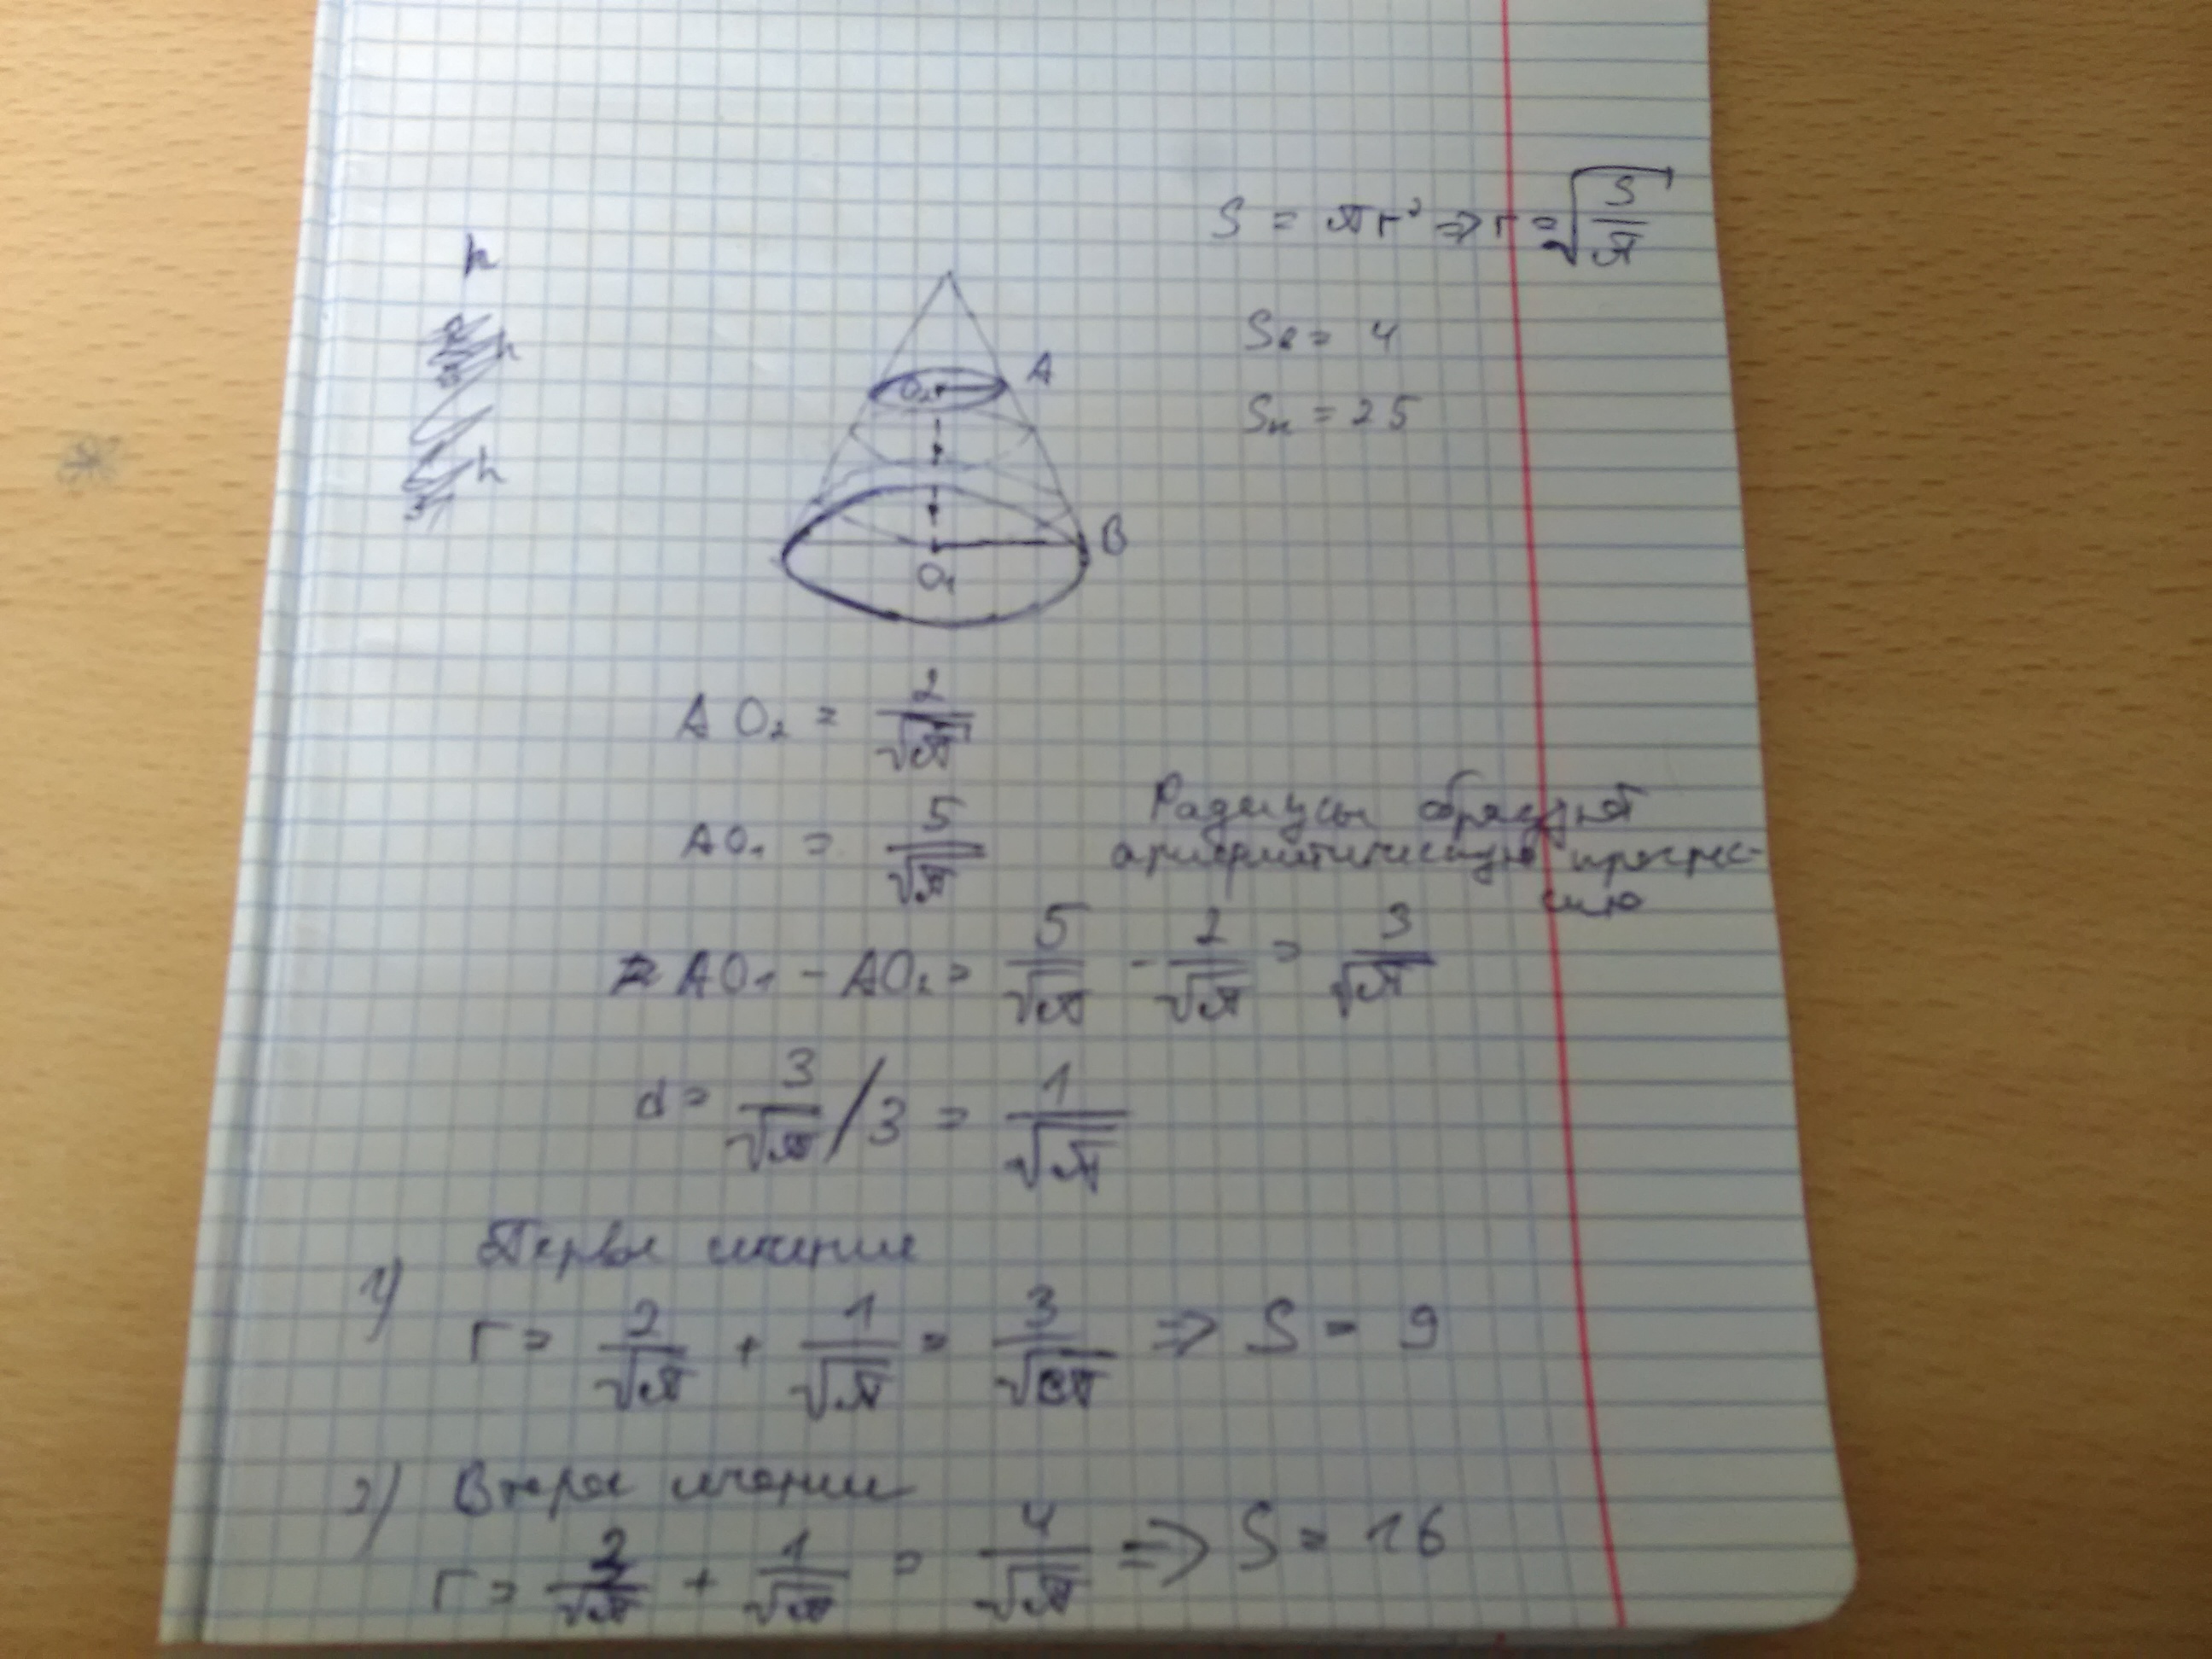 S = πr² => r = √(S/π)
h
Sв = 4
h
A
O₂
Sн = 25
h
B
O₁
AO₂ = 2/√π
AO₁ = 5/√π
Радиусы образуют
арифметическую прогрес-
сию
AO₁ - AO₂ = 5/√π - 2/√π = 3/√π
d = 3/√π / 3 = 1/√π
1) Первое сечение
r = 2/√π + 1/√π = 3/√π => S = 9
2) Второе сечение
r = /√π + 1/√π = 4/√π => S = 16